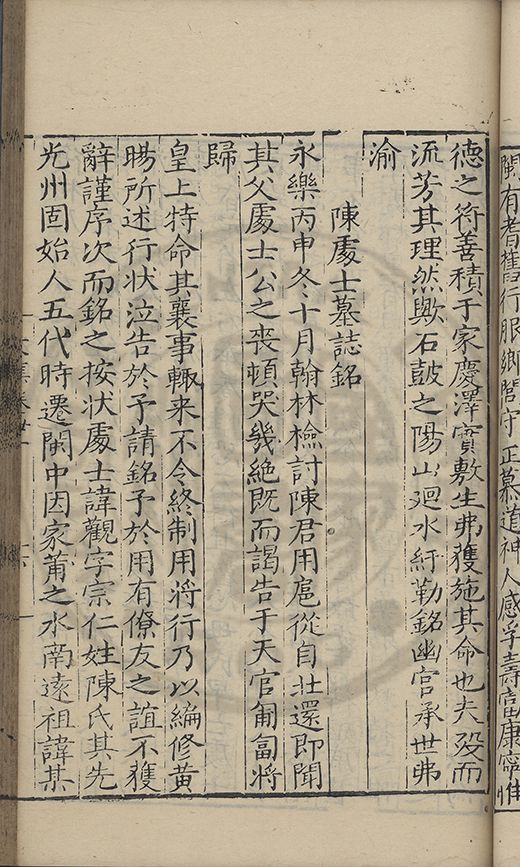 閩有耆舊行服鄉閭守正慕道神人感孚壽富康寧惟
德之符善積于家慶澤實敷生弗獲施其命也夫歿而
流芳其理然歟石鼓之陽山迴水紆勒銘幽宮承世弗
渝
陳處士墓誌銘
永樂丙申冬十月翰林檢討陳君用扈從自北還即聞
其父處士公之喪頓哭幾絶既而謁告于天官匍匐將
歸
皇上特命其襄事輙来不令終制用將行乃以編修黃
賜所述行状泣告於予請銘予於用有僚友之誼不獲
辭謹序次而銘之按状處士諱觀字宗仁姓陳氏其先
光州固始人五代時遷閩中因家莆之水南遠祖諱某